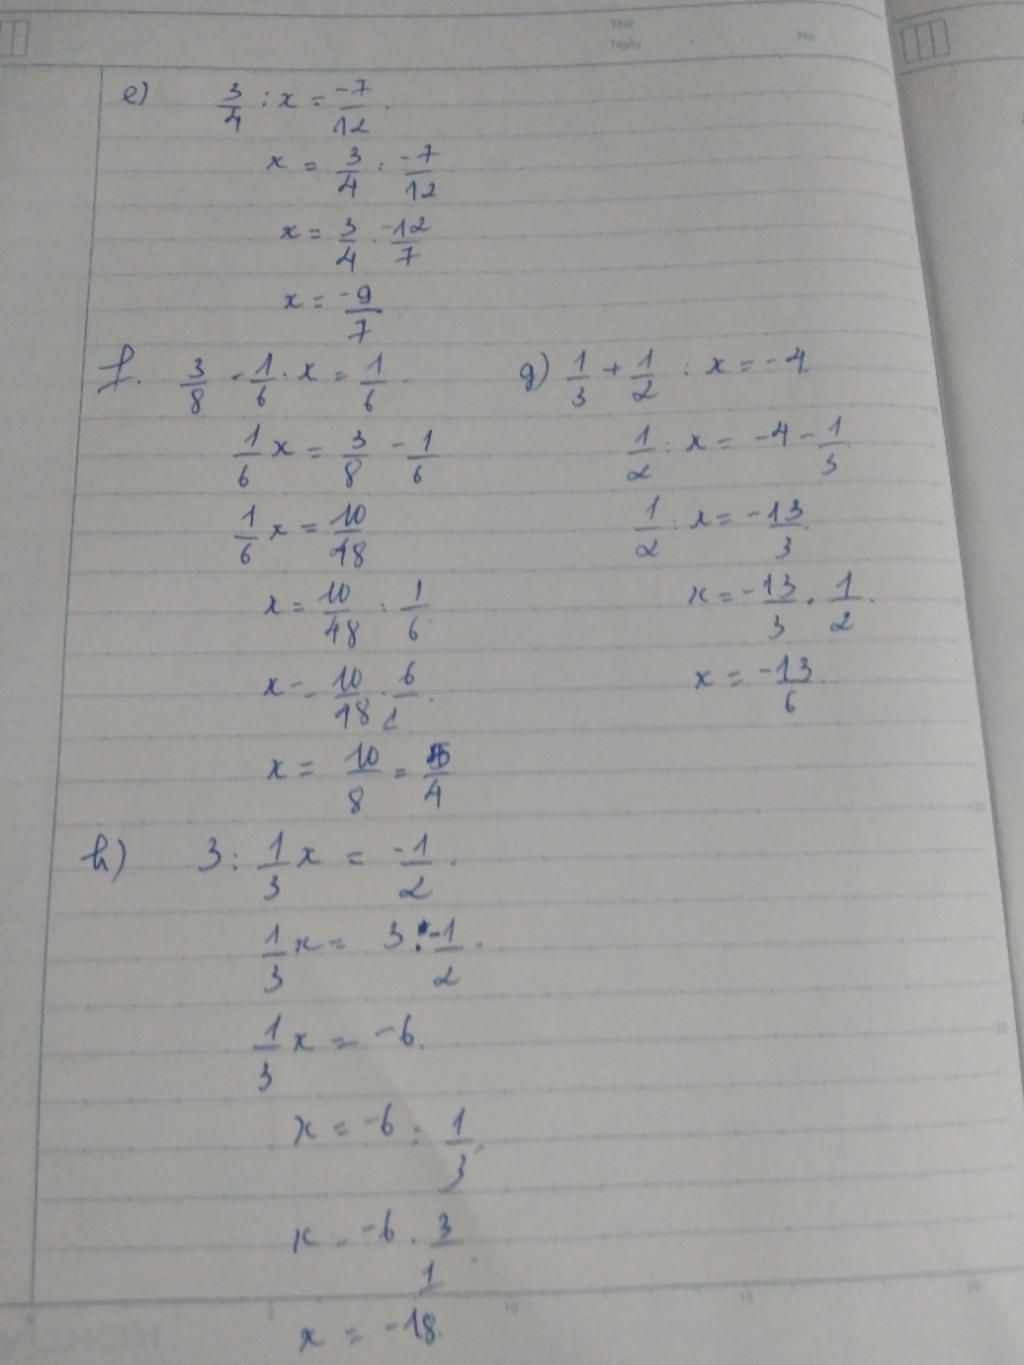 Thứ
Ngày
No.
e) 3/4 : x = -7/12.
x = 3/4 : -7/12
x = 3/4 . -12/7
x = -9/7
f. 3/8 - 1/6 . x = 1/6.
1/6 x = 3/8 - 1/6
1/6 x = 10/48
x = 10/48 : 1/6
x = 10/48 . 6/1.
x = 10/8 = 5/4
g) 1/3 + 1/2 : x = -4
1/2 : x = -4 - 1/3
1/2 : x = -13/3.
x = -13/3 . 1/2.
x = -13/6.
h) 3 : 1/3 x = -1/2.
1/3 x = 3 : -1/2.
1/3 x = -6.
x = -6 : 1/3.
x = -6 . 3/1
x = -18.
5 10 15 20